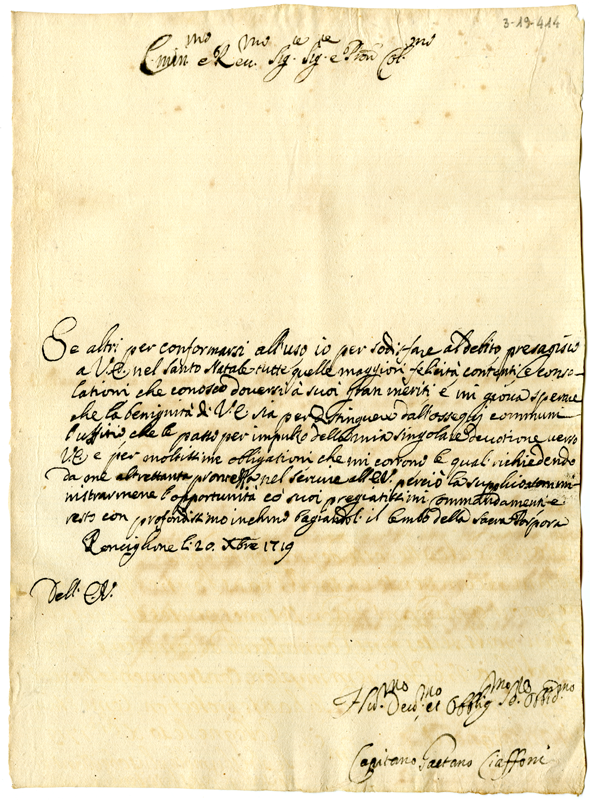 3-19-414
Emin.mo e Reu.mo Sig.re Sig.re e Pron Col.mo
Se altri per conformarsi all'uso io per sodisfare al debito presagisco
a V.E. nel Santo Natale tutte quelle maggiori felicità contenti, e conso-
lationi che conosco doversi à suoi gran meriti e mi gioua sperare
che la benignità di V.E. sia per distinguere dall'ossequij communi
l'uffitio che le passo per impulso della mia singolare deuotione uerso
V.E. e per moltissime obligationi che mi corrono le quali richiedendo
da me altrettanta prontezza nel seruire all'E.V. perciò la supplico sommi-
nistrarmene l'opportunità co suoi pregiatissimi commandamenti e
resto con profondissimo inchino bagiandoli il lembo della Sacra Porpora
Ronciglione li 20. Xbre 1719
Dell'E.V.
Hu.mo Deu.mo et Obblig.mo Se.re Ossid.mo
Capitano Gaetano Ciaffoni